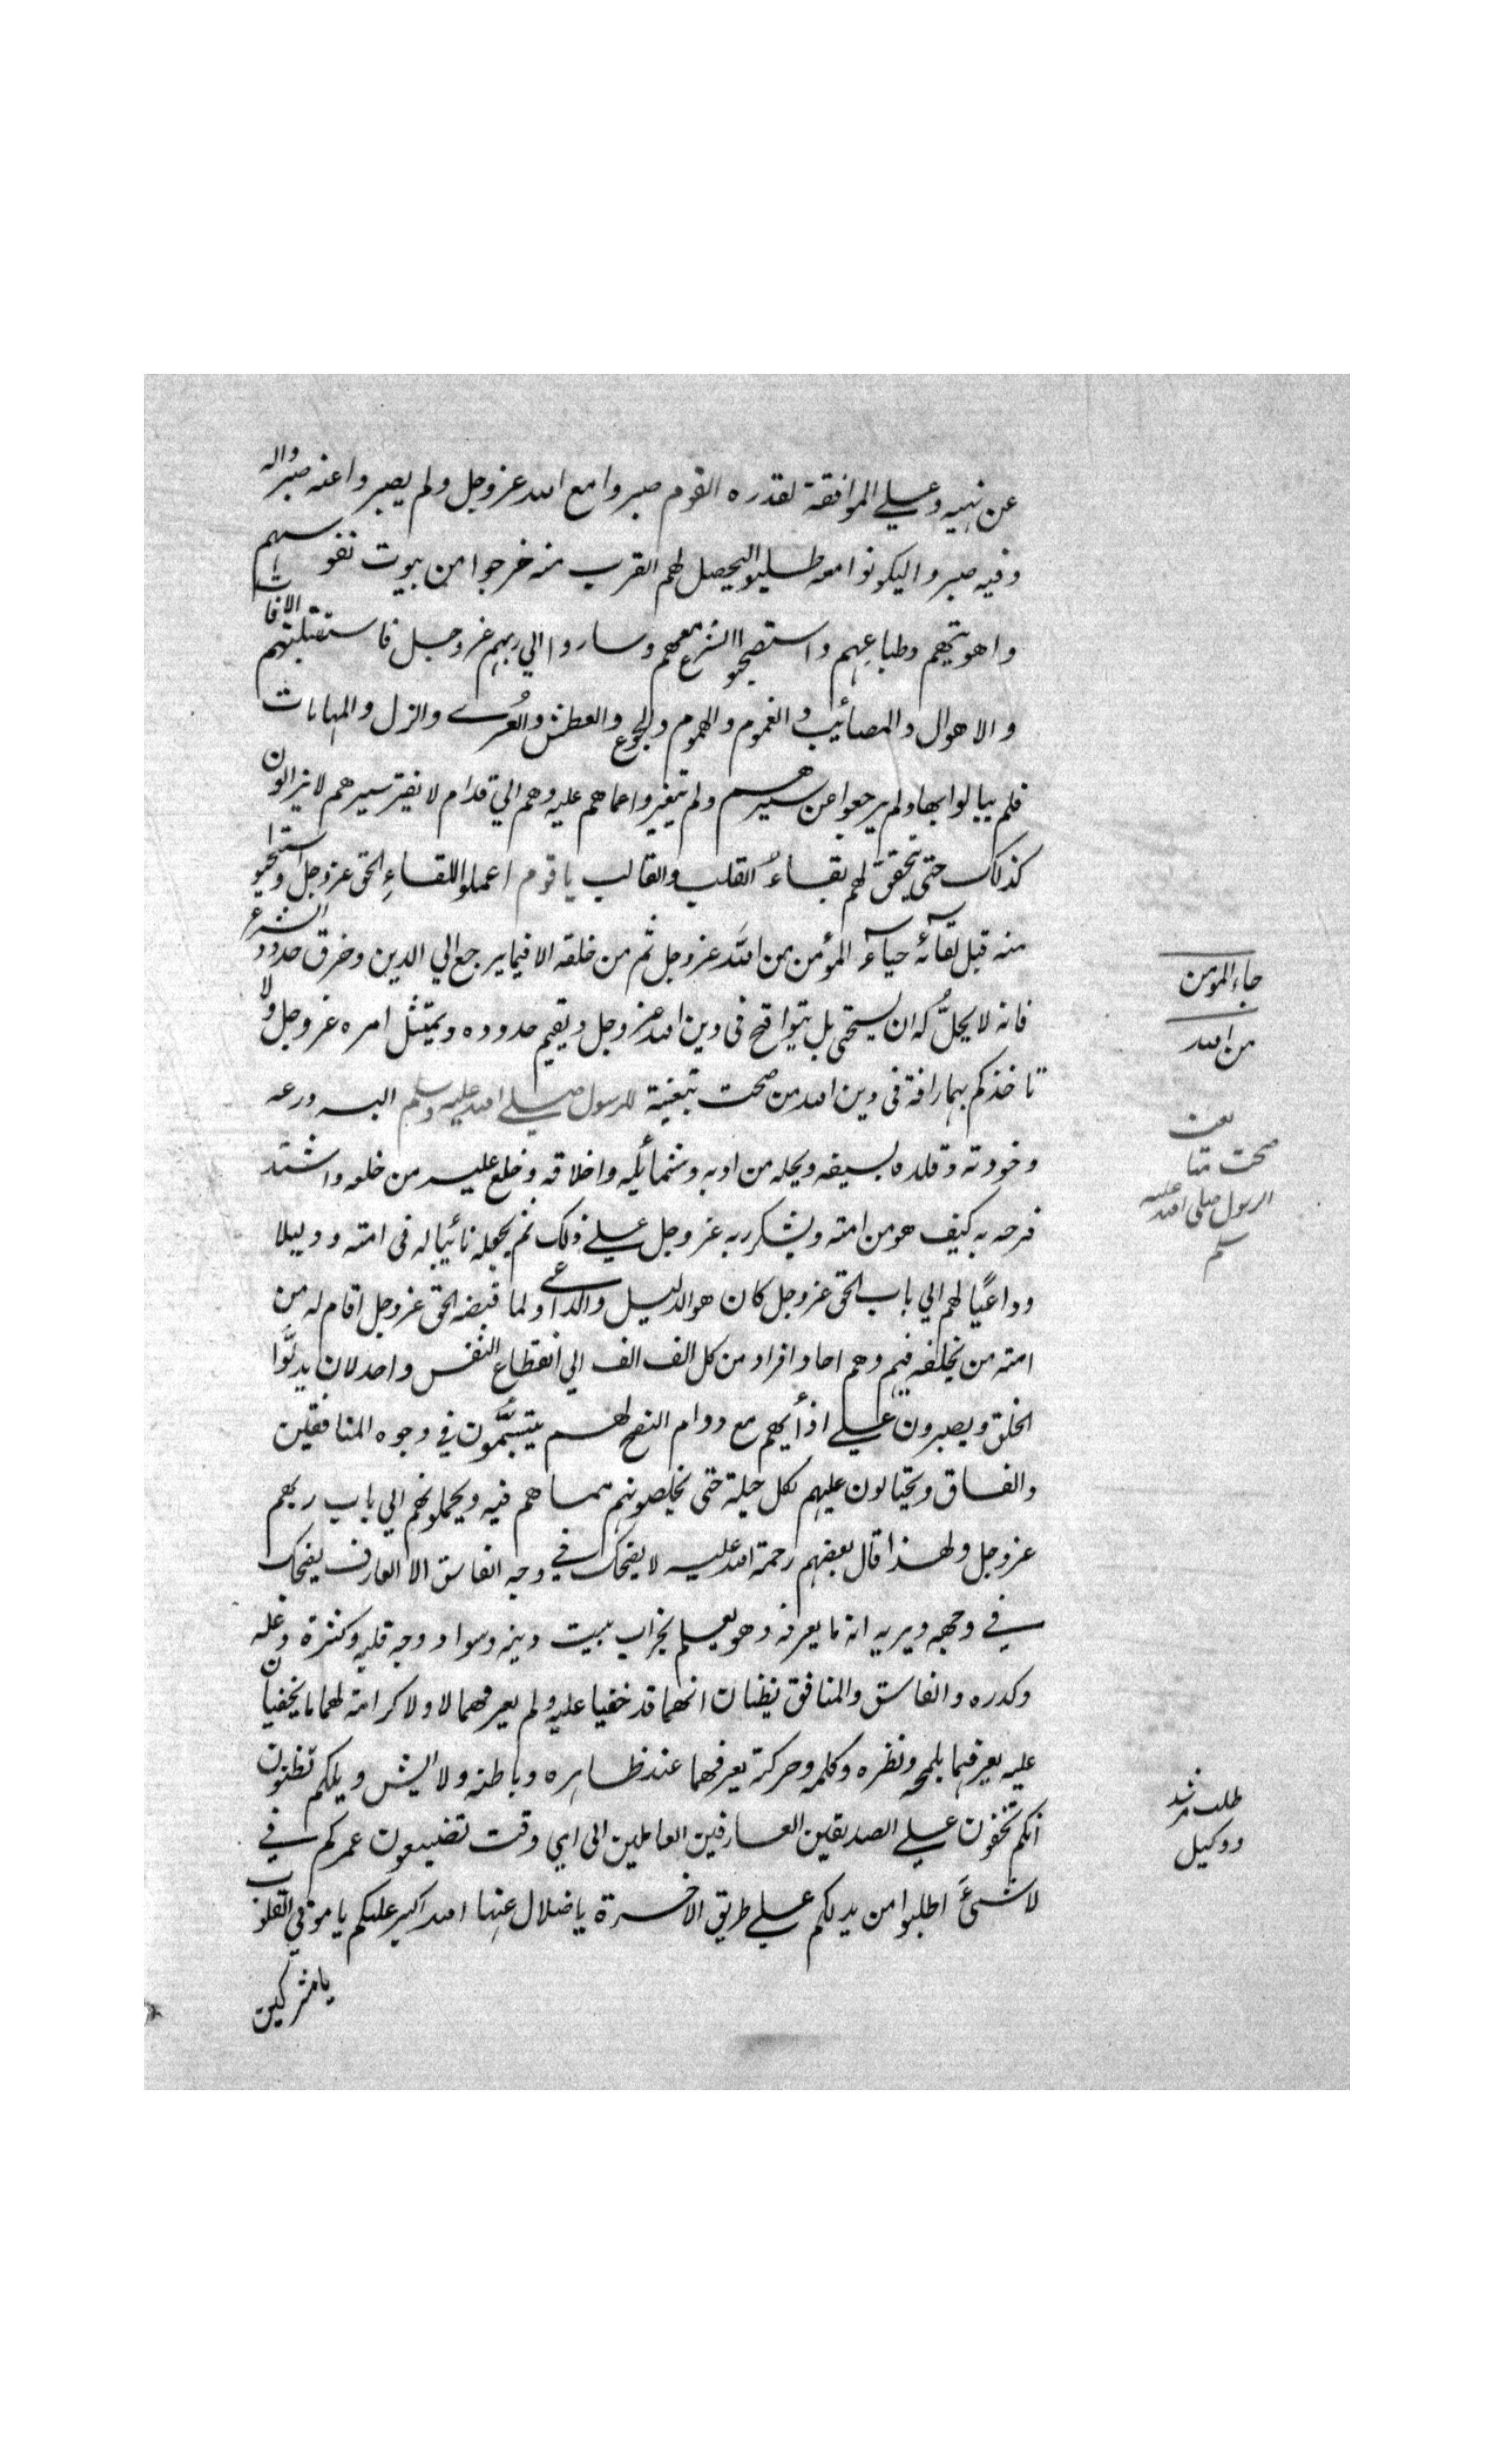 عن نهيه وعلي الموافقة لقدره القوم صبروا مع الله عز وجل ولم يصبروا عنه صبروا له
وفيه صبروا ليكونوا معه طلبوا ليحصل لهم القرب منه خرجوا من بيوت نفوسهم
واهويتهم وطباعهم واستصحبوا الشرع معهم وساروا الي ربهم عز وجل فاستقبلتهم الافات
والاهوال والمصائب والغموم والهموم والجوع والعطش والعرى والذل والمهانات
فلم يبالوا بها ولم يرجعوا عن سيرهم ولم يتغيروا عما هم عليه وهم الي قدام لا يفتر سيرهم لا يزالون
كذلك حتى يتحقق لهم بقاء القلب والقالب يا قوم اعملوا للقاء الحق عز وجل واستحيوا
منه قبل لقائه حياء المؤمن من الله عز وجل ثم من خلقه الا فيما يرجع الي الدين وخرق حدود الشرع
فانه لا يحل له ان يستحى بل يتواقح فى دين الله عز وجل ويقيم حدوده ويمتثل امره عز وجل ولا
تاخذكم بهما رافة فى دين الله من صحت تبعيته للرسول صلي الله عليه وسلم البسه درعه
وخودته وقلده بسيفه ونحله من ادبه وشمائله واخلاقه وخلع عليه من خلعه واشتد
فرحه به كيف هو من امته ويشكر ربه عز وجل علي ذلك ثم يجعله نائبا له فى امته ودليلا
وداعيًا لهم الي باب الحق عز وجل كان هو الدليل والداعي ولما قبضه الحق عز وجل اقام له من
امته من يخلفه فيهم وهم احاد افراد من كل الف الف الي انقطاع النفس واحد لان يدلوا
الخلق ويصبرون علي اذأيهم مع دوام النصح لهم يتبسمون في وجوه المنافقين
والفساق ويحتالون عليهم بكل حيلة حتى يخلصونهم مما هم فيه ويحملونهم الي باب ربهم
عز وجل ولهذا قال بعضهم رحمة الله عليه لا يضحك في وجه الفاسق الا العارف يضحك
في وجهه ويريه انه ما يعرفه وهو يعلم بخراب بيت دينه وسواد وجه قلبه وكثرة غله
وكدره والفاسق والمنافق يظنان انهما قد خفيا عليه ولم يعرفهما لا ولا كرامة لهما ما يخفيان
عليه يعرفهما بلمحه ونظره وكلمه وحركة يعرفهما عند ظاهره وباطنه ولا ايش ويلكم تظنون
انكم تخفون علي الصديقين العارفين العاملين الى اي وقت تضيعون عمركم في
لا شئ اطلبوا من يدلكم علي طريق الاخرة يا ضلال عنها الله اكبر عليكم يا موتي القلوب
يا مشركين
حياء المومن
من الله
صحت متابعت
الرسول صلى الله عليه
سلم
طلب مرشد
ووكيل